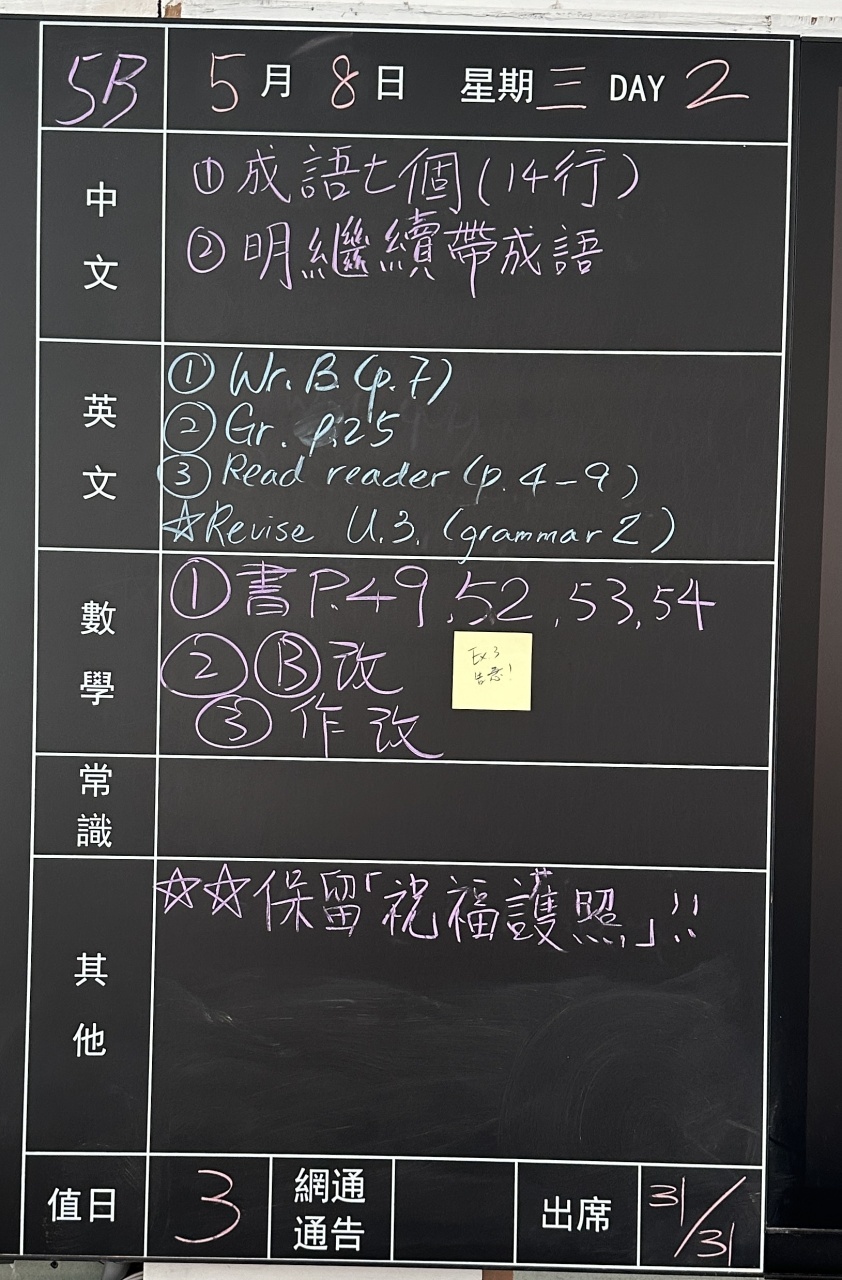 5B 5月8日 星期三 DAY 2
中文
①成語七個(14行)
②明繼續帶成語
英文
①Wr. B. (p.7)
②Gr. p.25
③Read reader (p.4-9)
☆Revise U.3. (grammar 2)
數學
①書P.49,52,53,54
②Ⓑ改
Ex 3
③作改
常識
其他
☆☆保留「祝福護照」!!
值日 3 網通通告 出席 31/31